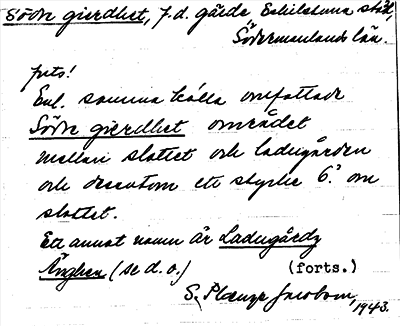 Södre gierdhet, f.d. gärde Eskilstuna stad,
Södermanlands län.
forts!
Enl. samma källa omfattade
Södre gierdhet området
mellan slottet och ladugården
och dessutom ett stycke ö. om
slottet.
Ett annat namn är Ladugårdz
Änghen (se d. o.)
(forts.)
S. Jacobson, 1943.